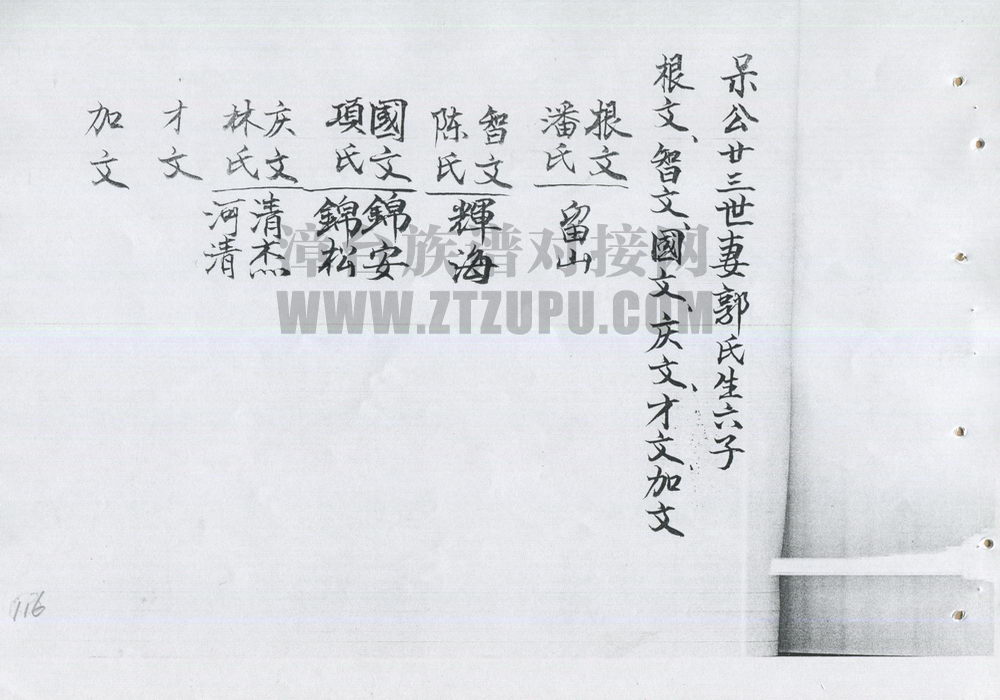 呆公廿三世妻郭氏生六子
根文、智文、國文、庆文、才文、加文
根文
潘氏
留山
智文
陈氏
輝海
國文
項氏
錦安
錦松
庆文
林氏
清杰
河清
才文
加文
漳台族谱对接网
WWW.ZTZUPU.COM
916